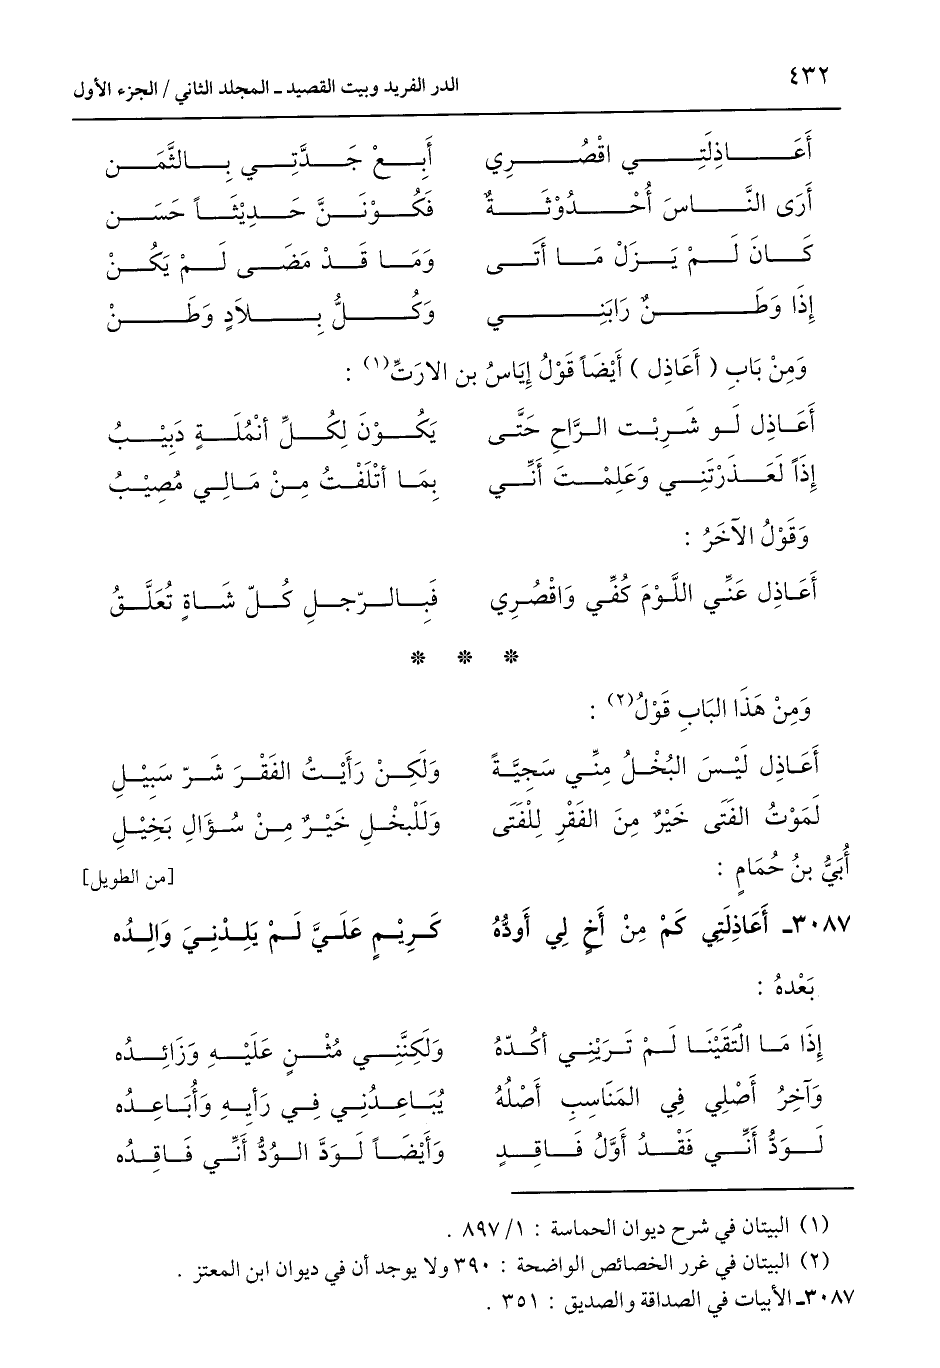 ٤٣٢ الدر الفريد وبيت القصيد - المجلد الثاني / الجزء الأول
أَعَاذِلَتِي اقْصُرِي أَبِعْ جَدَّتِي بِالثَّمَنِ
أَرَى النَّاسَ أُحْدُوْثَةٌ فَكُوْنَنَّ حَدِيْثَاً حَسَنِ
كَانَ لَمْ يَزَلْ مَا أَتَى وَمَا قَدْ مَضَى لَمْ يَكُنْ
إِذَا وَطَنٌ رَابَنِي وَكُلُّ بِلاَدٍ وَطَنْ
وَمِنْ بَابِ ( أَعَاذِل ) أَيْضَاً قَوْلُ إِيَاسُ بن الارَتِّ(١) :
أَعَاذِل لَو شَرِبْت الرَّاحِ حَتَّى يَكُوْنَ لِكُلِّ أنْمُلَةٍ دَبِيْبُ
إِذَاً لَعَذَرْتَنِي وَعَلِمْتَ أَنِّي بِمَا أتْلَفْتُ مِنْ مَالِي مُصِيْبُ
وَقَوْلُ الآخَرُ :
أَعَاذِل عَنِّي اللَّوْمَ كُفِّي وَاقْصُرِي فَبِالرّجلِ كُلّ شَاةٍ تُعَلَّقُ
* * *
وَمِنْ هَذَا البَابِ قَوْلُ(٢) :
أَعَاذِل لَيْسَ البُخْلُ مِنِّي سَجِيَّةً وَلَكِنْ رَأَيْتُ الفَقْرَ شَرّ سَبِيْلِ
لَمَوْتُ الفَتَى خَيْرٌ مِنَ الفَقْرِ لِلْفَتَى وَلَلْبخْلِ خَيْرٌ مِنْ سُؤَالِ بَخِيْلِ
أُبَيُّ بنُ حُمَامٍ : [من الطويل]
٣٠٨٧- أَعَاذِلَتِي كَمْ مِنْ أَخٍ لِي أَودُّهُ كَرِيْمٍ عَلَيَّ لَمْ يَلِدْنِيَ وَالِدُه
بَعْدهُ :
إِذَا مَا الْتَقَيْنَا لَمْ تَرَيْنِي أكُدّهُ وَلَكِنَّنِي مُثْنٍ عَلَيْهِ وَزَائِدُه
وَآخِرُ أَصْلِي فِي المَنَاسِبِ أَصْلُهُ يُبَاعِدُنِي فِي رَأيهِ وَأُبَاعِدُه
لَوَدُّ أَنِّي فَقْدُ أَوَّلُ فَاقِدٍ وَأَيْضَاً لَودَّ الوُدُّ أَنِّي فَاقِدُه
(١) البيتان في شرح ديوان الحماسة : ٨٩٧/١ .
(٢) البيتان في غرر الخصائص الواضحة : ٣٩٠ ولا يوجد أن في ديوان ابن المعتز .
٣٠٨٧- الأبيات في الصداقة والصديق : ٣٥١ .